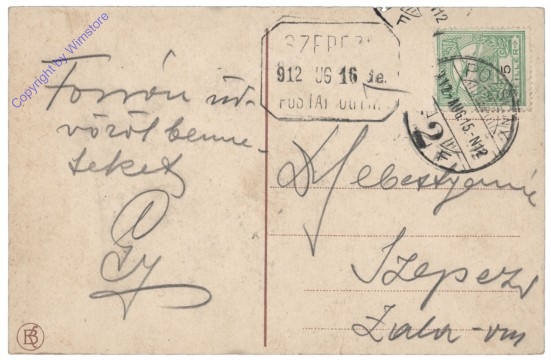 Copyright by Wimstore
Forrón üd-
vözöl benne-
teket
Gy
SZEPEZD
912 AUG 16 de.
POSTAI
912 AUG 15-N12
5
2
Szepezd
Zala-m